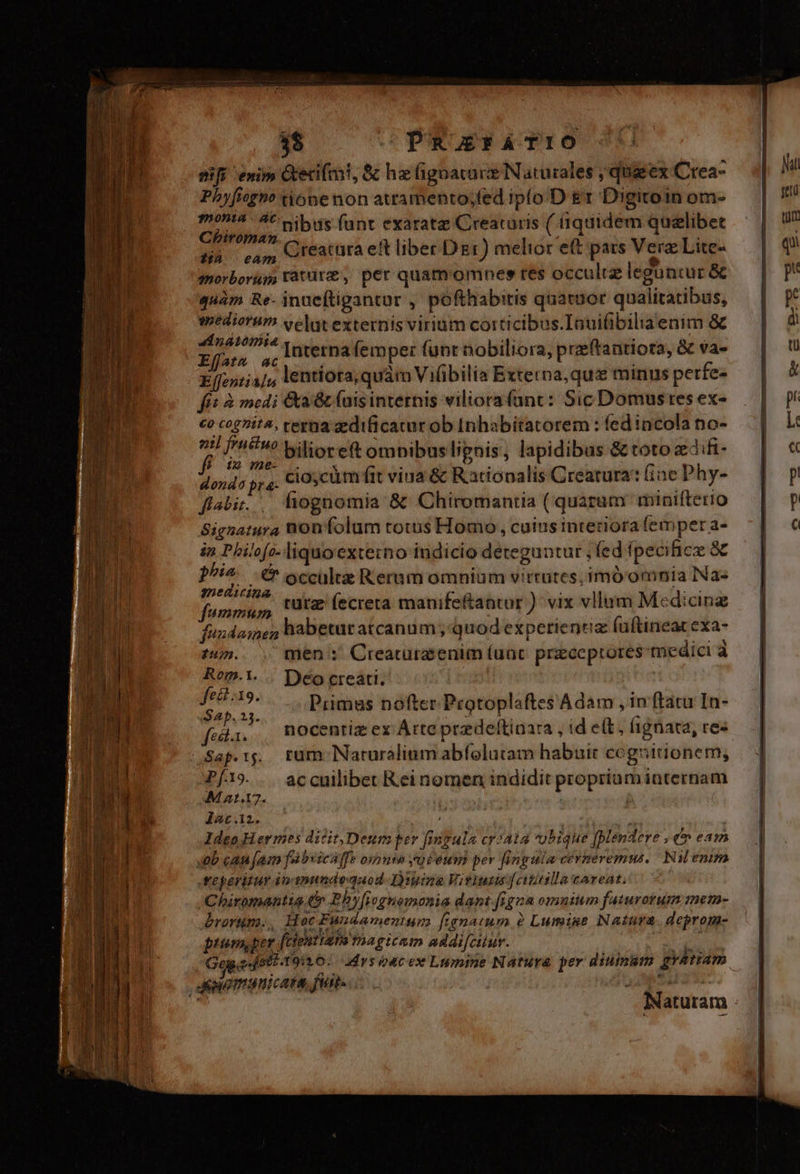 38 PRÆFATIO
nisi enim
Physiogno
monia ac
Chiroman.
tiâ eam
morborum
quàm Re-
mediorum
Anatomia
Essata ac
Essentialu
sit à medi
co cognita,
nil fructuo
si in me-
dondo præ-
stabit.
Signatura
in Philoso-
phia &
medicina
summum
fundamen
tum.
Rom.1.
sect.19.
Sap.23.
sect.1.
Sap.15.
Ps.19.
Mat.17.
Iac.12.
& ecismi, & hæ signaturæ Naturales, quæ ex Crea-
tione non atramento, sed ipso DEI Digito in om-
nibus sunt exaratæ Creaturis (siquidem quælibet
Creatura est liber DEI) melior est pars Veræ Lite-
raturæ, per quam omnes res occultæ leguntur &
inuestigantur, posthabitis quatuor qualitatibus,
velut externis virium corticibus. Inuisibilia enim &
Interna semper sunt nobiliora, præstantiora, & va-
lentiora, quàm Visibilia Externa, quæ minus perfe-
cta & suis internis viliora sunt: Sic Domus res ex-
terna ædificatur ob Inhabitatorem: sed incola no-
bilior est omnibus lignis, lapidibus & toto ædifi-
cio, cùm sit viua & Rationalis Creatura: sine Phy-
siognomia & Chiromantia (quarum ministerio
non solum totus Homo, cuius interiora semper a-
liquo externo indicio deteguntur, sed specificæ &
occultæ Rerum omnium virtutes, imò omnia Na-
turæ secreta manifestantur) vix vllum Medicinæ
habetur arcanum, quod experientiæ sustineat exa-
men: Creaturæ enim sunt præceptores medici à
Deo creati.
Primus noster Protoplastes Adam, in statu In-
nocentiæ ex Arte prædestinata, id est, signata, re-
rum Naturalium absolutam habuit cognitionem,
ac cuilibet Rei nomen indidit proprium internam
Ideo Hermes dicit, Deum per singula creata vbique splendere, & eam
ob causam fabricasse omnia vt eum per singula cerneremus. Nil enim
reperitur in mundo quod Diuinæ Virtutis scintilla careat.
Chiromantia & Physiognomonia dant signa omnium futurorum mem-
brorum. Hoc Fundamentum signatum è Lumine Naturæ deprom-
ptum, per scientiam magicam addiscitur.
Gen. sect.19.20. Ars hæc ex Lumine Naturæ per diuinam gratiam
communicata fuit.
Naturam